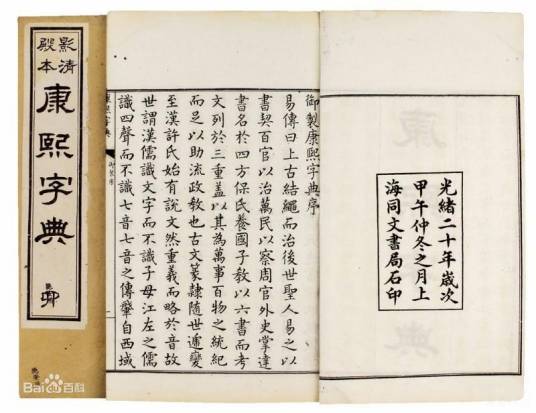 影清
殿本
康熙字典
光緒二十年歲次
甲午仲冬之月上
海同文書局石印
御製康熙字典序
易傳曰上古結繩而治後世聖人易之以
書契百官以治萬民以察周官外史掌達
書名於四方保氏養國子教以六書而考
文列於三重蓋以其為萬事百物之統紀
而足以助流政教也古文篆隸隨世遞變
至漢許氏始有說文然重義而略於音故
世謂漢儒識文字而不識子母江左之儒
識四聲而不識七音七音之傳肇自西域
康熙字典
Bai百科